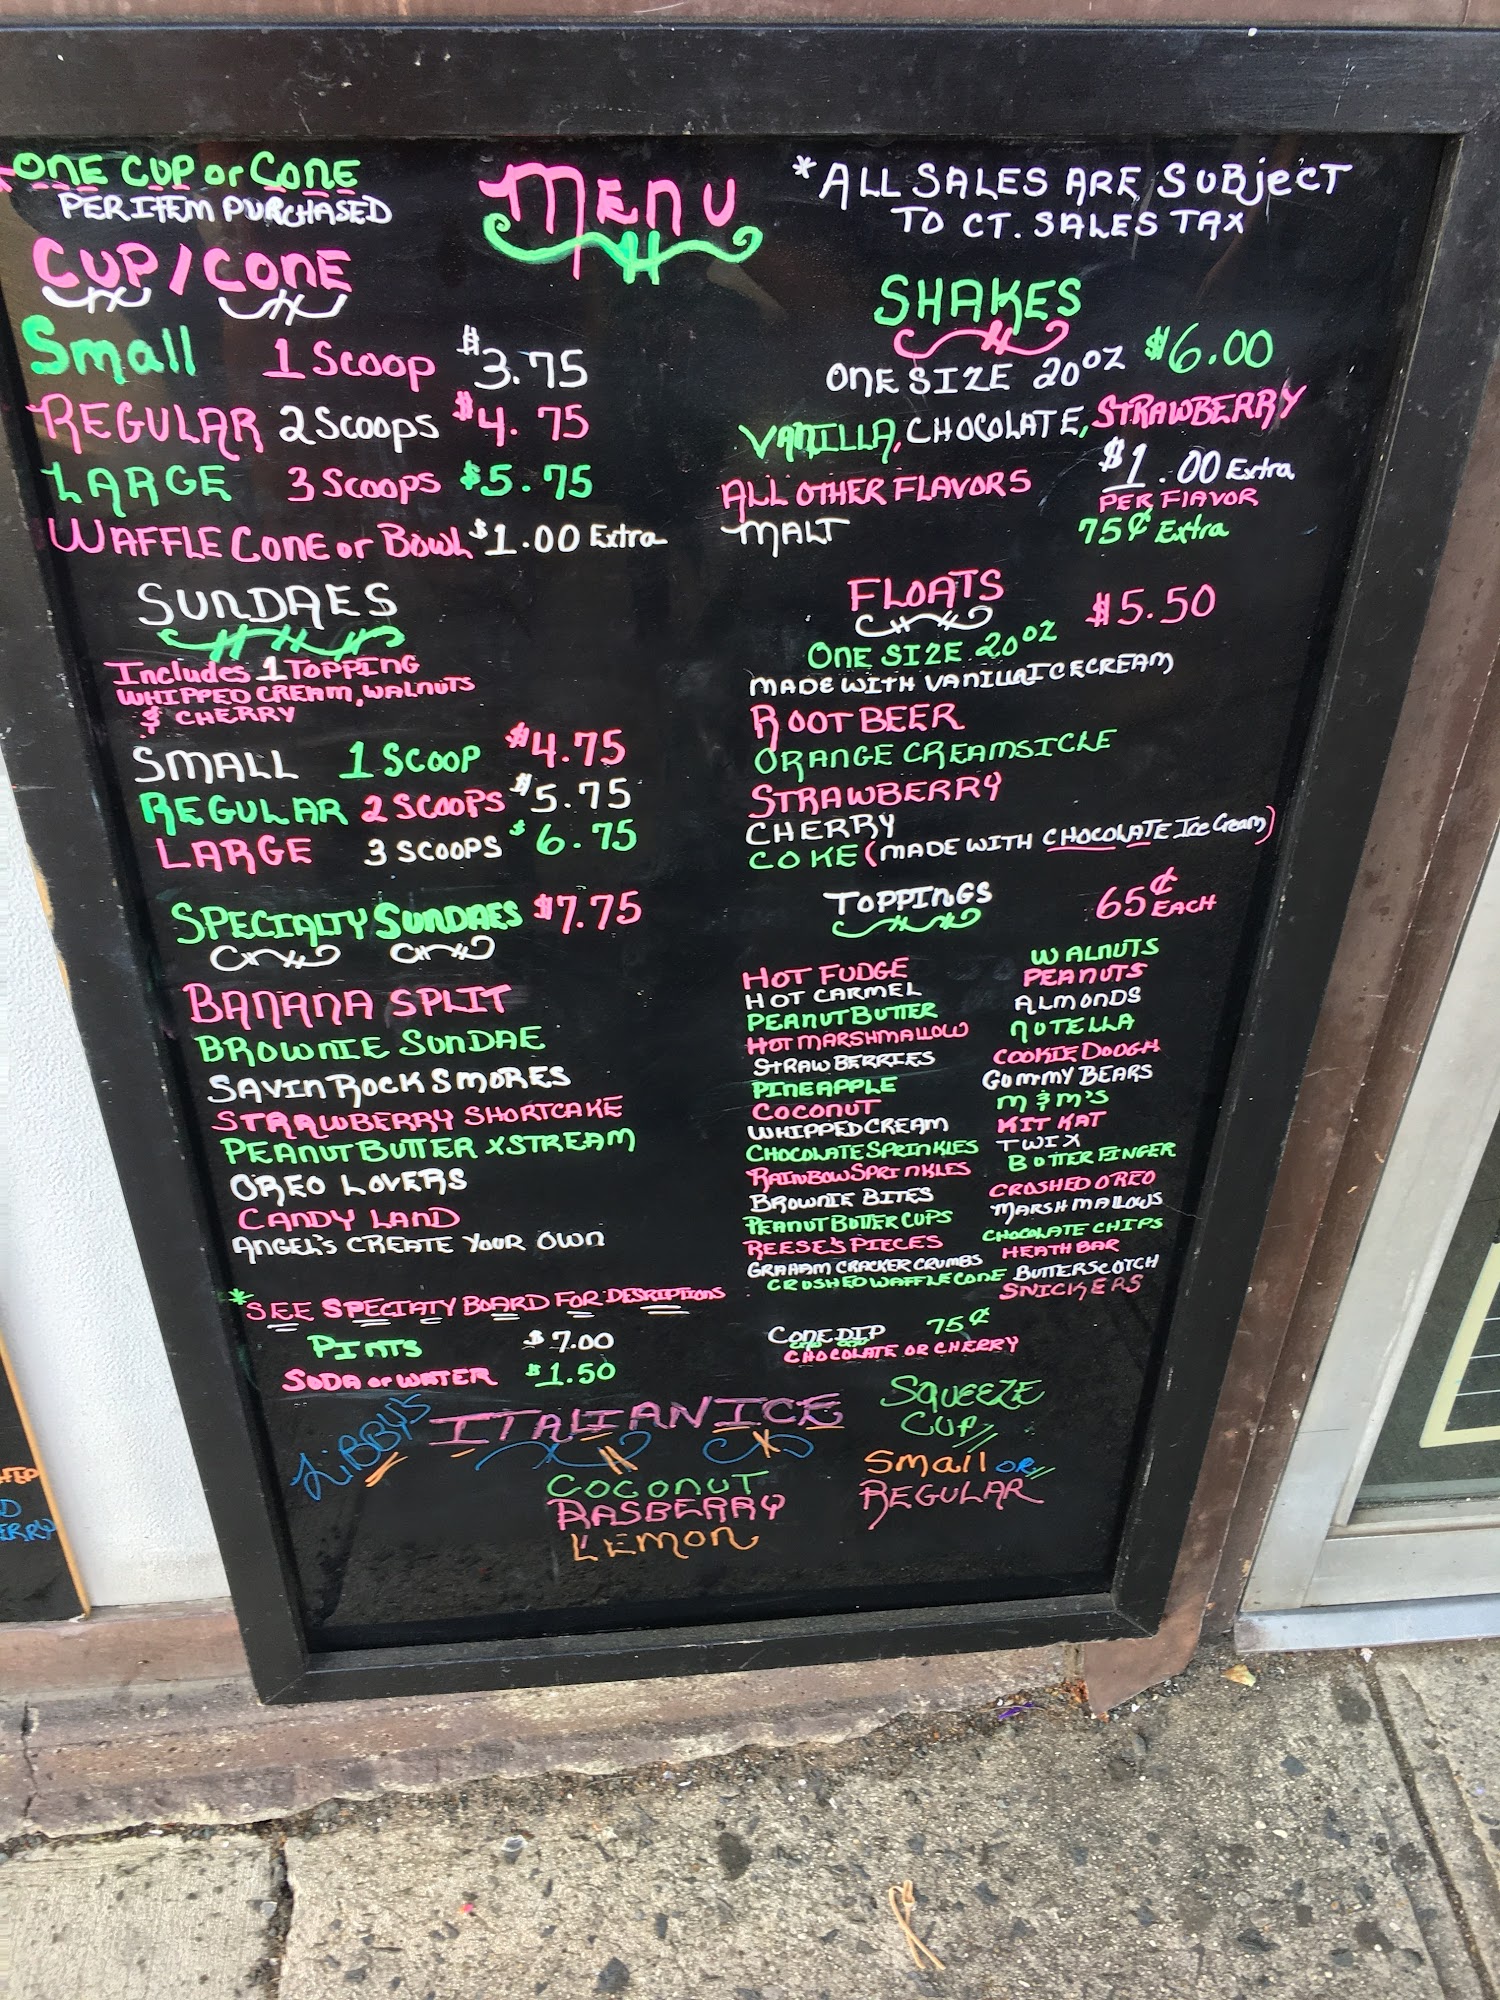 *ONE CUP or CONE
PER ITEM PURCHASED
MENU
*ALL SALES ARE SUBJECT
TO CT. SALES TAX
CUP/CONE
Small 1 Scoop $3.75
REGULAR 2 Scoops $4.75
LARGE 3 Scoops $5.75
WAFFLE CONE or Bowl $1.00 Extra
SUNDAES
Includes 1 TOPPING
WHIPPED CREAM, WALNUTS
& CHERRY
SMALL 1 SCOOP $4.75
REGULAR 2 SCOOPS $5.75
LARGE 3 SCOOPS $6.75
SPECIALTY SUNDAES $7.75
BANANA SPLIT
BROWNIE SUNDAE
SAVIN ROCK SMORES
STRAWBERRY SHORTCAKE
PEANUT BUTTER XSTREAM
OREO LOVERS
CANDY LAND
ANGEL'S CREATE YOUR OWN
*SEE SPECIATY BOARD FOR DESRIPTIONS
PINTS $7.00
SODA or WATER $1.50
SHAKES
ONE SIZE 20oz $6.00
VANILLA, CHOCOLATE, STRAWBERRY
ALL OTHER FLAVORS $1.00 Extra
PER FLAVOR
MALT 75¢ Extra
FLOATS $5.50
ONE SIZE 20oz
MADE WITH VANILLA ICE CREAM
ROOT BEER
ORANGE CREAMSICLE
STRAWBERRY
CHERRY
COKE (MADE WITH CHOCOLATE Ice Cream)
TOPPINGS 65¢ EACH
HOT FUDGE
HOT CARMEL
PEANUT BUTTER
HOT MARSHMALLOW
STRAWBERRIES
PINEAPPLE
COCONUT
WHIPPED CREAM
CHOCOLATE SPRINKLES
RAINBOW SPRINKLES
BROWNIE BITES
PEANUT BUTTER CUPS
REESE'S PIECES
GRAHAM CRACKER CRUMBS
CRUSHED WAFFLE CONE
WALNUTS
PEANUTS
ALMONDS
NUTELLA
COOKIE DOUGH
GUMMY BEARS
M&M'S
KIT KAT
TWIX
BUTTERFINGER
CRUSHED OREO
MARSHMALLOWS
CHOCOLATE CHIPS
HEATH BAR
BUTTERSCOTCH
SNICKERS
CONE DIP 75¢
CHOCOLATE OR CHERRY
LiBBY'S ITALIAN ICE
COCONUT
RASBERRY
LEMON
SQUEEZE
CUP
Small OR
REGULAR
ERRY